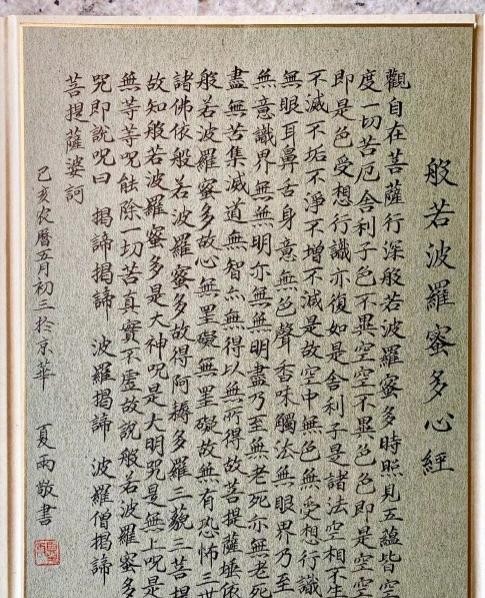 般若波羅蜜多心經
觀自在菩薩行深般若波羅蜜多時照見五蘊皆空
度一切苦厄舍利子色不異空空不異色色即是空空
即是色受想行識亦復如是舍利子是諸法空相不生
不滅不垢不淨不增不減是故空中無色無受想行識
無眼耳鼻舌身意無色聲香味觸法無眼界乃至
無意識界無無明亦無無明盡乃至無老死亦無老死
盡無苦集滅道無智亦無得以無所得故菩提薩埵依
般若波羅蜜多故心無罣礙無罣礙故無有恐怖三世
諸佛依般若波羅蜜多故得阿耨多羅三藐三菩提
故知般若波羅蜜多是大神咒是大明咒是無上咒是
無等等咒能除一切苦真實不虛故說般若波羅蜜多
咒即說咒曰 揭諦揭諦 波羅揭諦 波羅僧揭諦
菩提薩婆訶
己亥農曆五月初三於京華 夏雨敬書